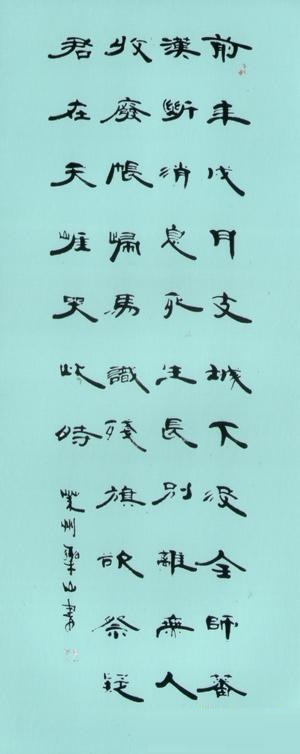 前年戍月支城下没全師蕃
漢斷消息死生長別離無人
收廢帳歸馬識殘旗欲祭疑
君在天涯哭此時
州 山書